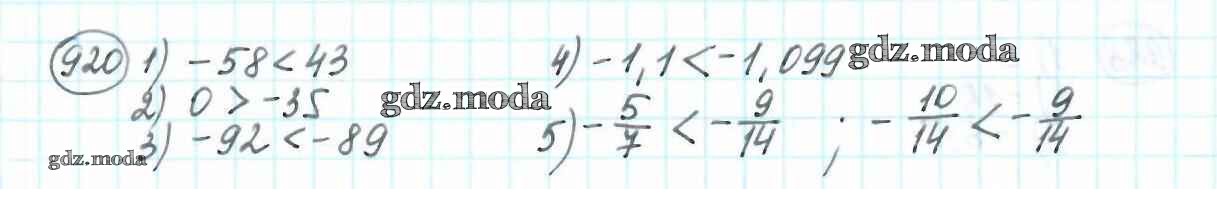 920 1) -58 < 43
2) 0 > -35 gdz.moda
3) -92 < -89
gdz.moda
4) -1,1 < -1,099 gdz.moda
5) -5/7 < -9/14 ; -10/14 < -9/14